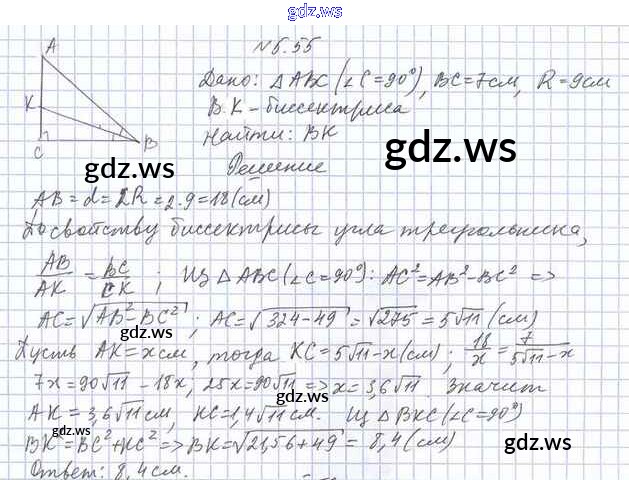 gdz.ru
№5.55
A
K
C
B
Дано: △ABC (∠C=90°), BC=7см, R=9см
BK – биссектриса
Найти: BK
gdz.ru
gdz.ru
Решение
AB = d = 2R = 2·9 = 18 (см)
По свойству биссектрисы угла треугольника,
AB/AK = BC/CK ; Из △ABC (∠C=90°): AC² = AB² – BC² =>
AC = √AB² – BC² ; AC = √324 – 49 = √275 = 5√11 (см)
Пусть AK = x см, тогда KC = 5√11 – x (см) ; 18/x = 7/5√11 – x
7x = 90√11 – 18x, 25x = 90√11 => x = 3,6√11. Значит
gdz.ru
AK = 3,6√11 см, KC = 1,4√11 см. Из △BKC (∠C=90°)
BK² = BC² + KC² => BK = √21,56 + 49 = 8,4 (см)
gdz.ru
gdz.ru
Ответ: 8,4 см.